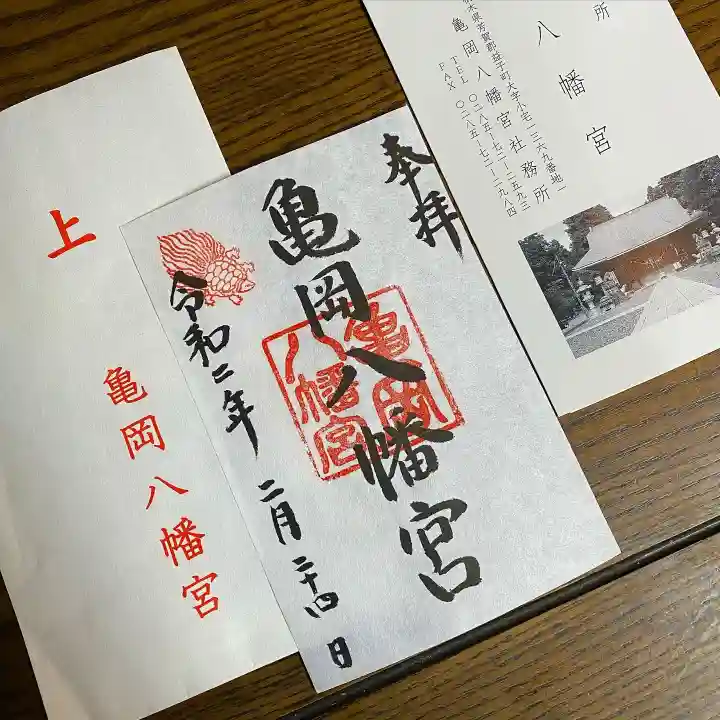 上
亀岡八幡宮
奉拝
亀岡八幡宮
亀岡
八幡宮
令和二年
二月二十四日
所
八幡宮
木県芳賀郡益子町大字小宅一三六九番地一
亀岡八幡宮社務所
TEL 〇二八五-七二-二五九三
FAX 〇二八五-七二-二九八四